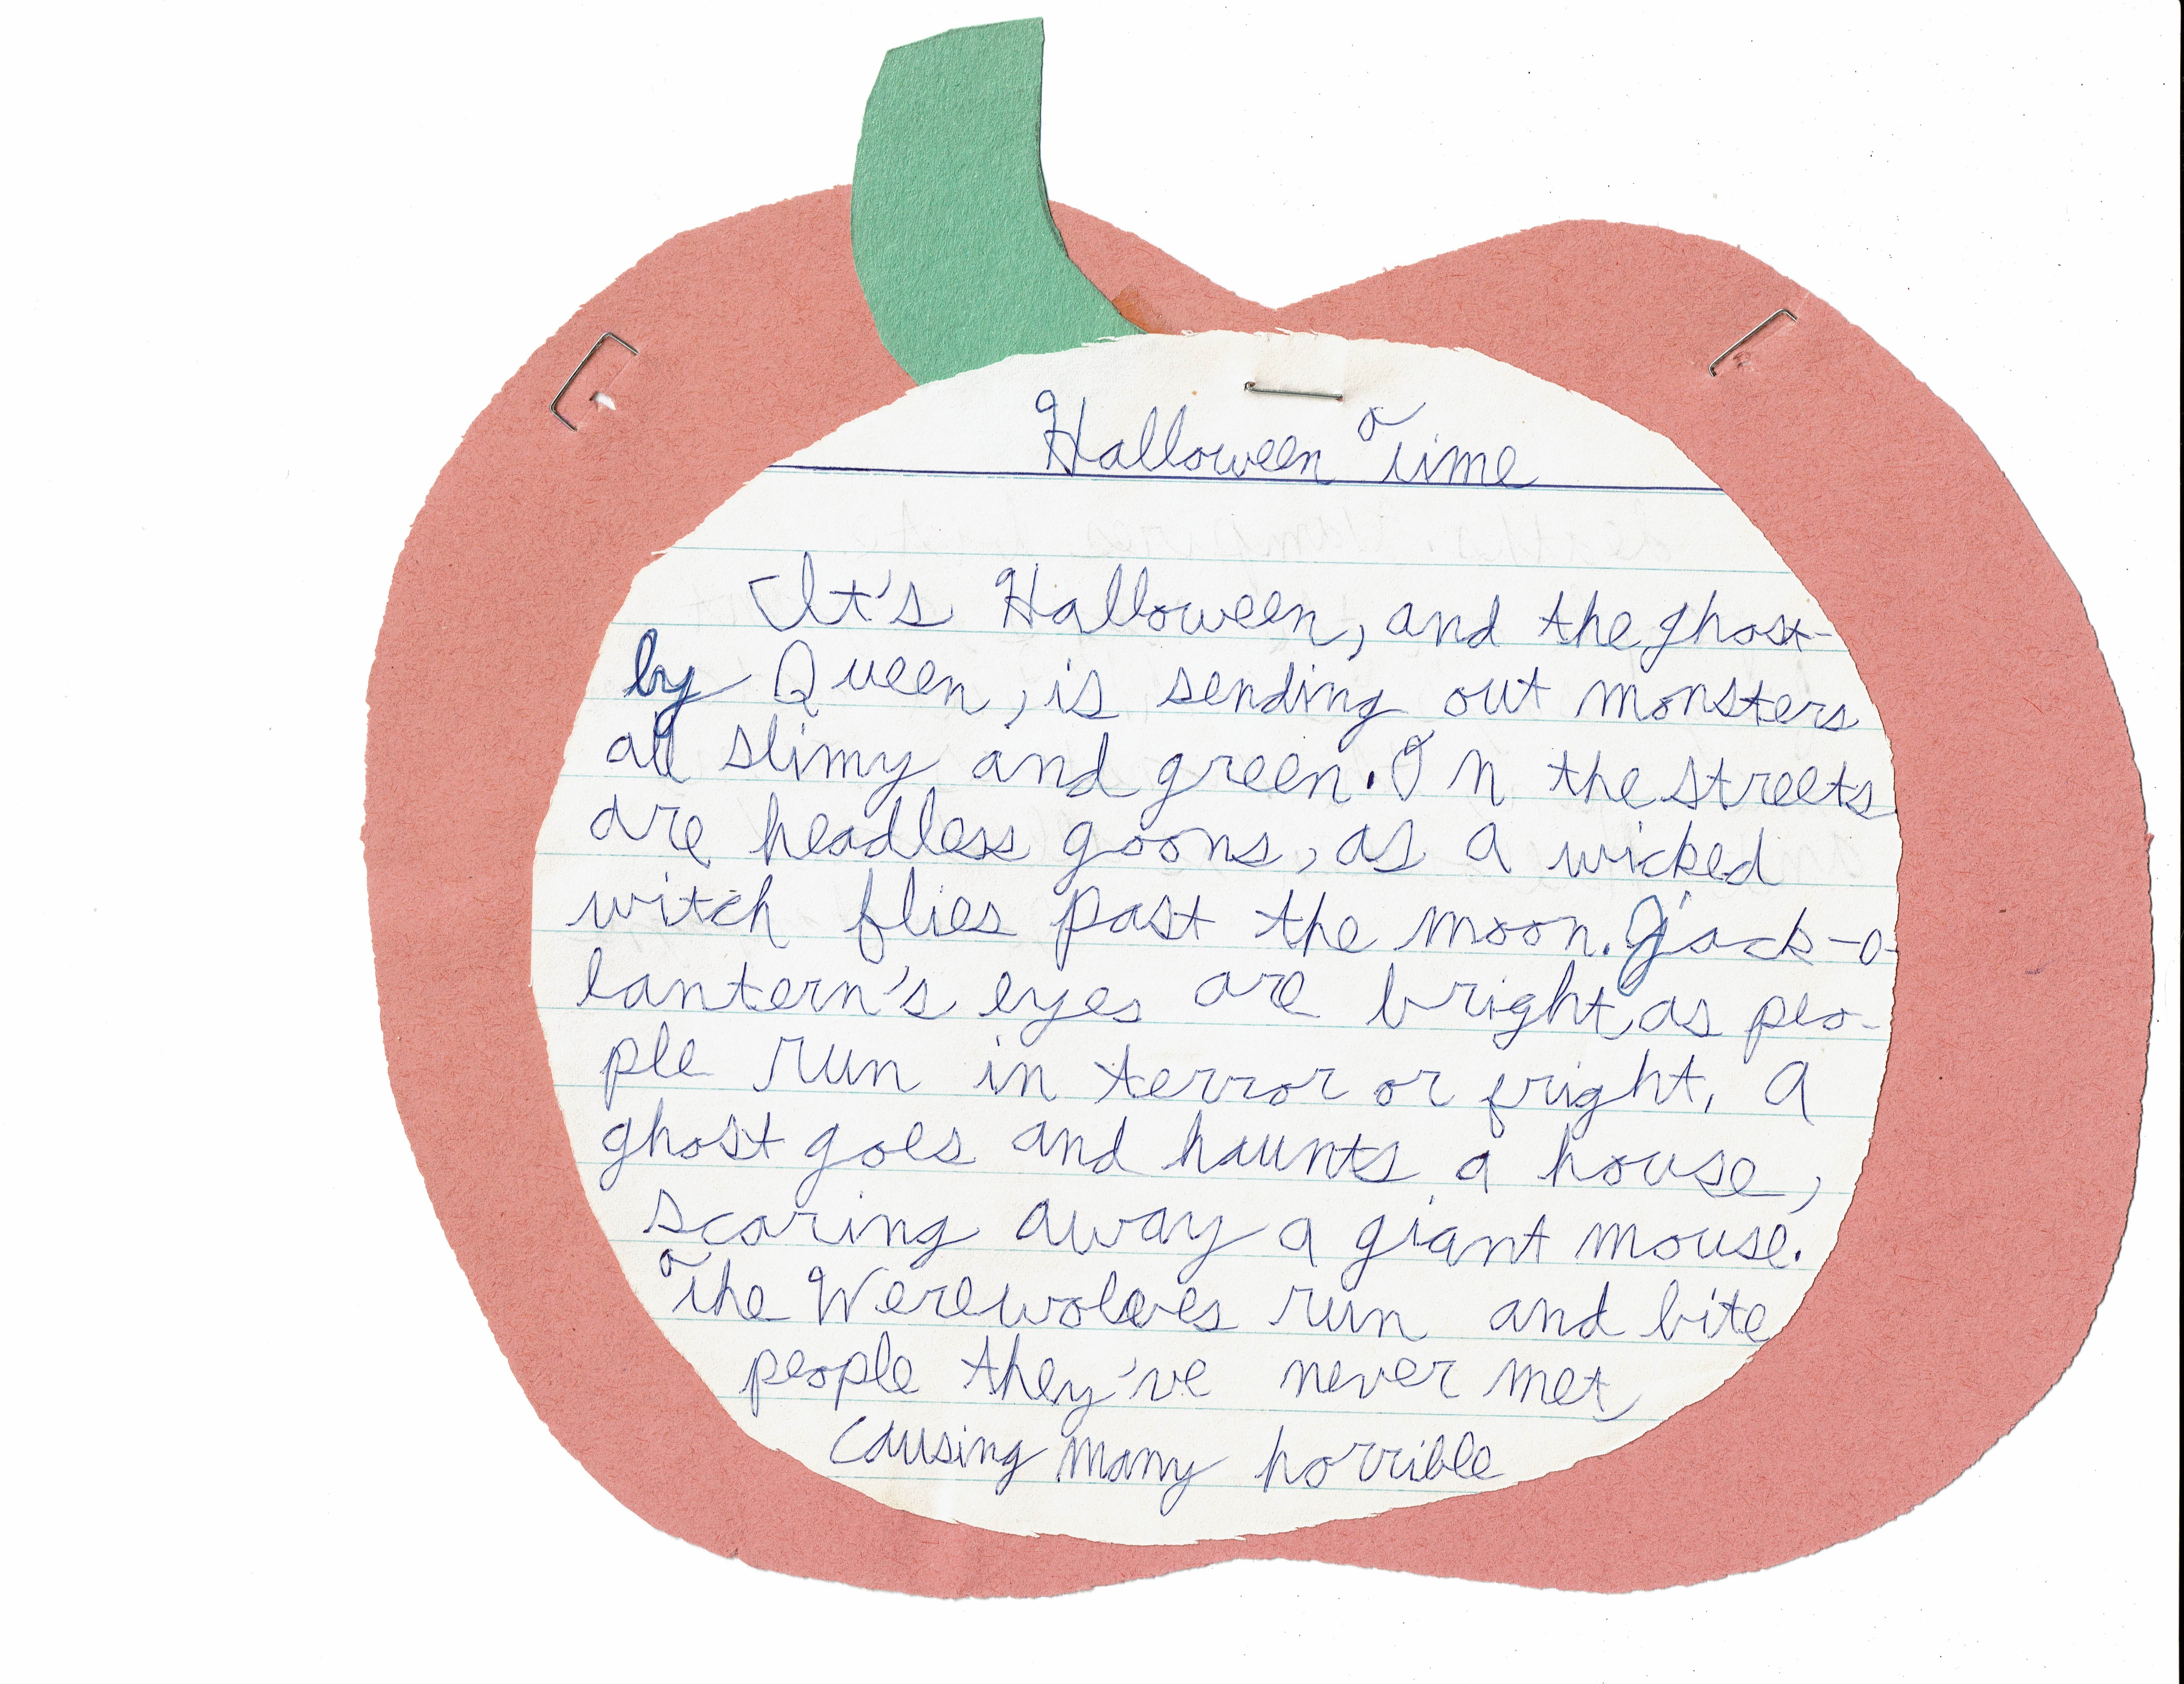 Halloween Time
It's Halloween, and the ghost-
ly Queen, is sending out monsters
all slimy and green. In the streets
are headless goons, as a wicked
witch flies past the moon. Jack-o-
lantern's eyes are bright, as peo-
ple run in terror or fright. A
ghost goes and haunts a house,
scaring away a giant mouse.
The Werewolves run and bite
people they've never met,
causing many horrible